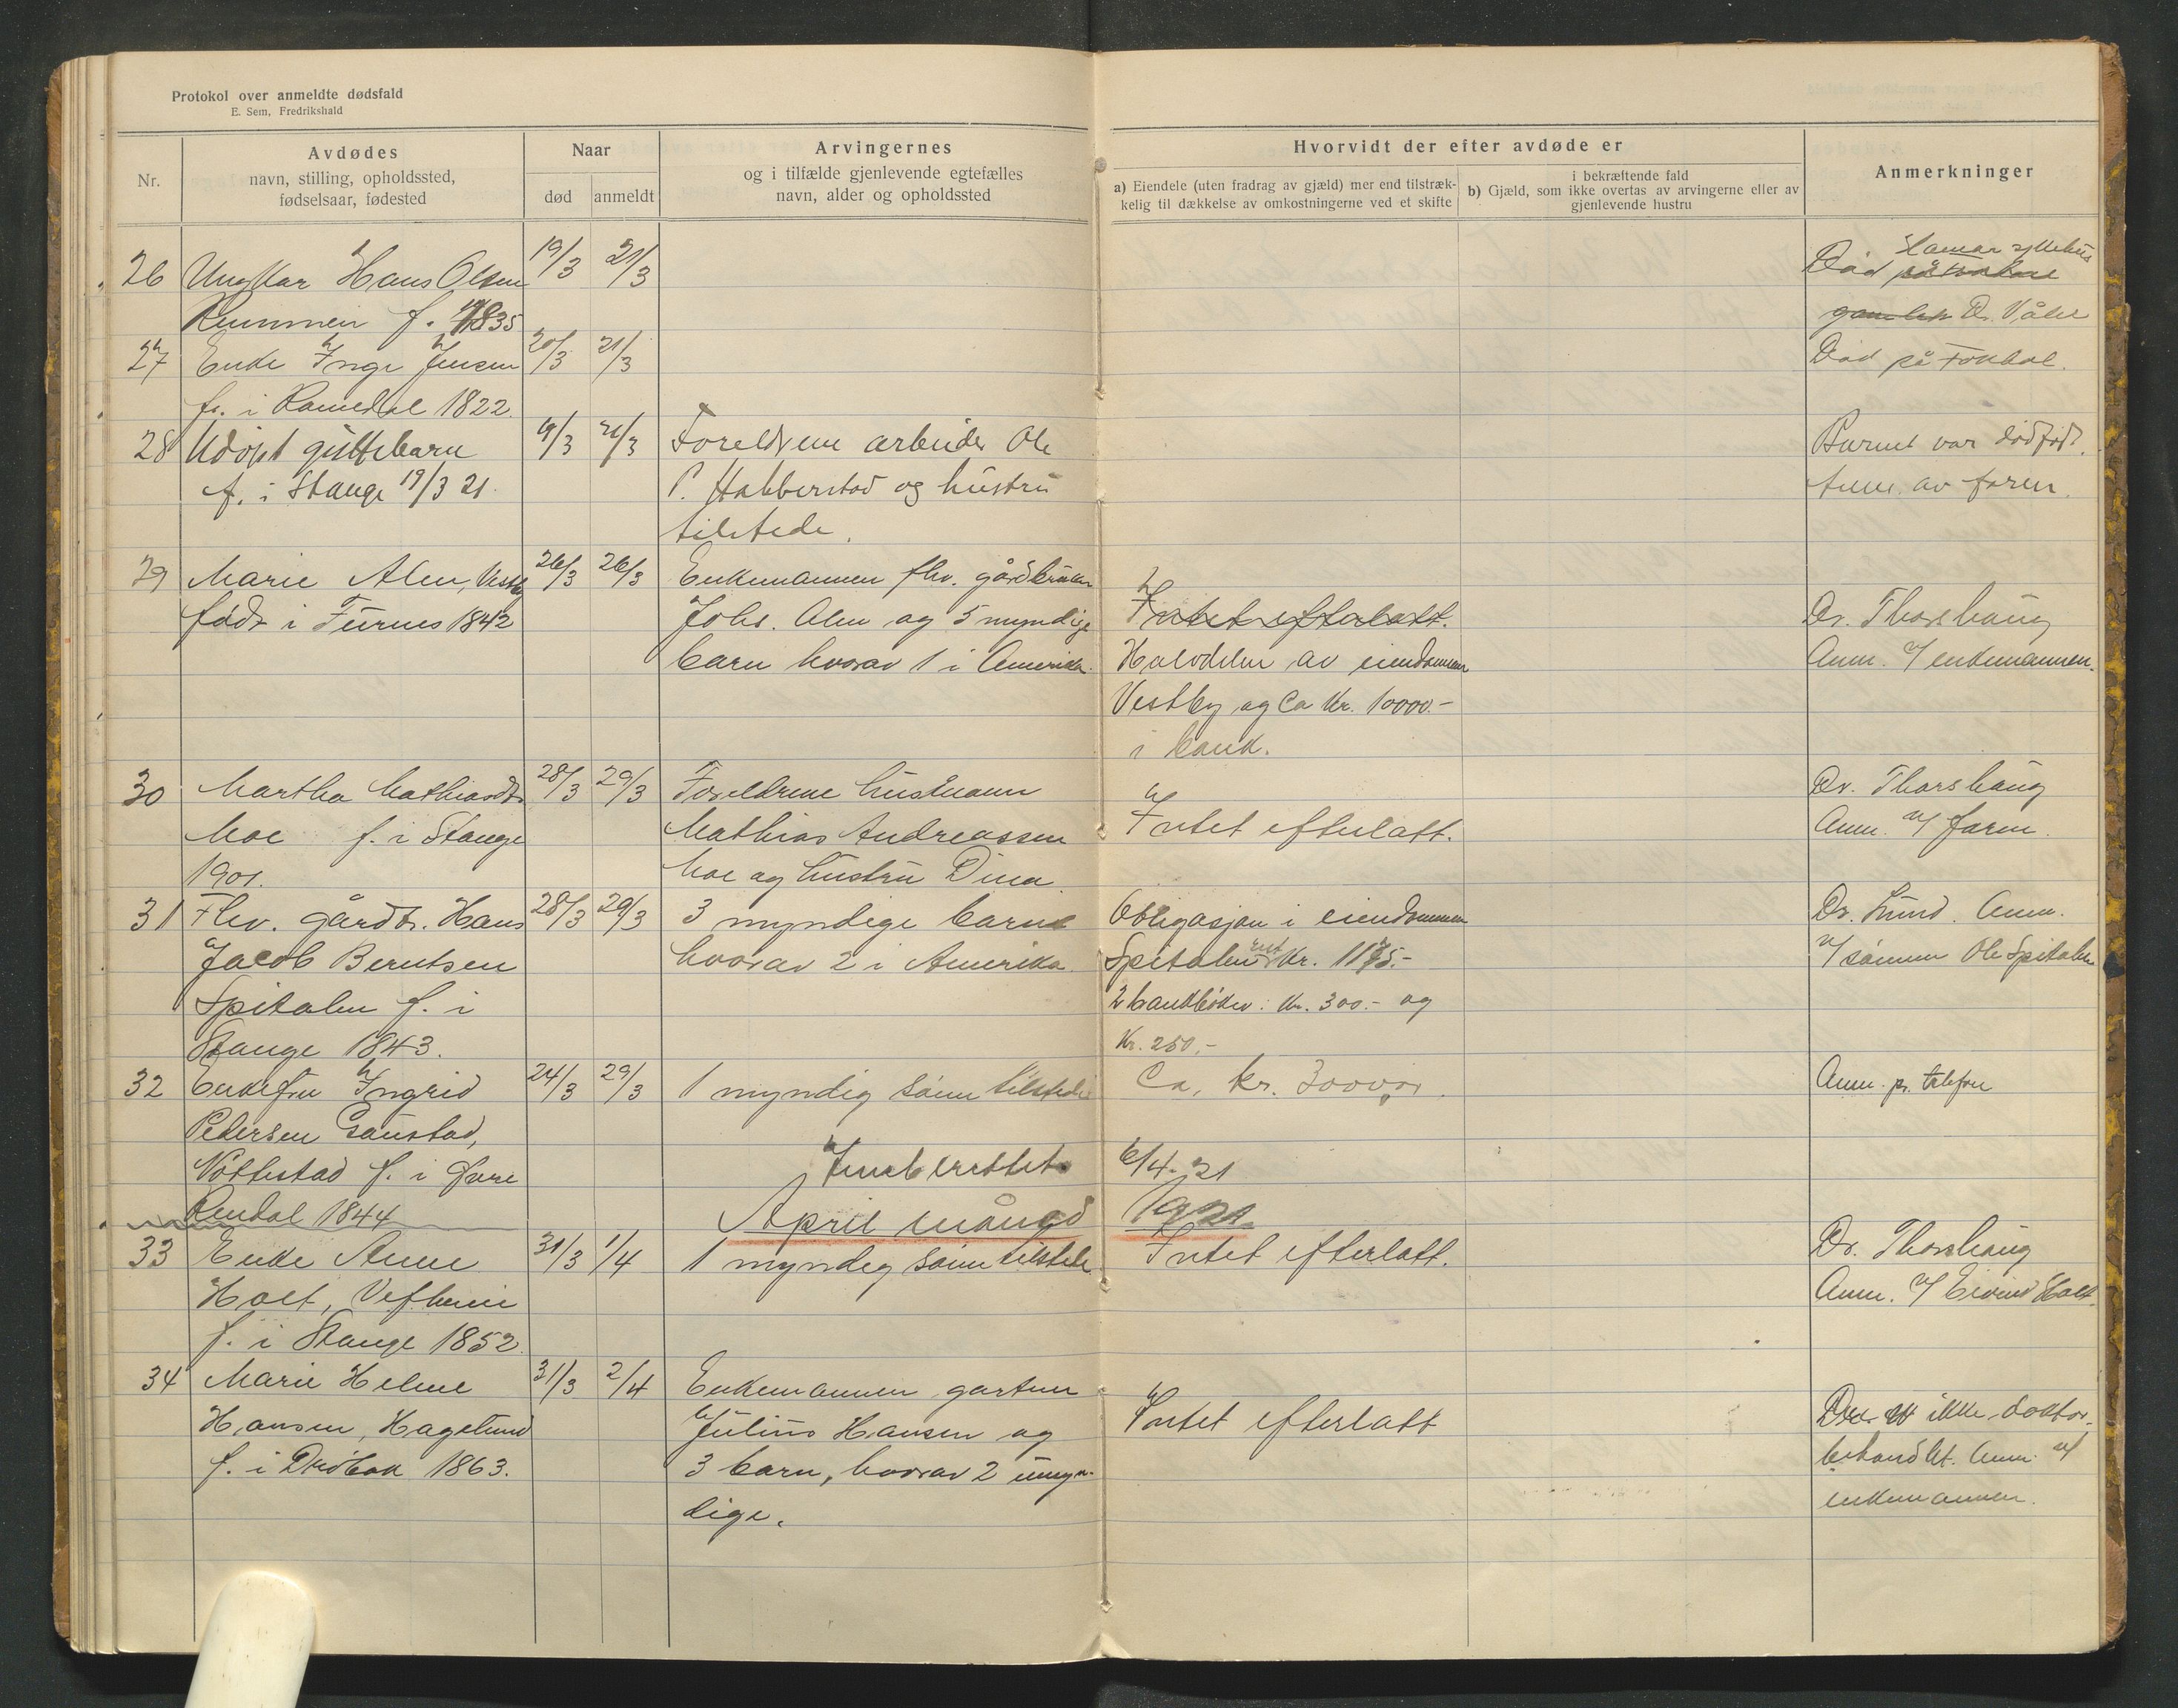 Protokol over anmeldte dødsfald
E. Sem, Fredrikshald
Nr.
Avdødes
navn, stilling, opholdssted,
fødselsaar, fødested
Naar
død
anmeldt
Arvingernes
og i tilfælde gjenlevende egtefælles
navn, alder og opholdssted
Hvorvidt der efter avdøde er
a) Eiendele (uten fradrag av gjæld) mer end tilstræk-
kelig til dækkelse av omkostningerne ved et skifte
i bekræftende fald
b) Gjæld, som ikke overtas av arvingerne eller av
gjenlevende hustru
Anmerkninger
26 Ungkar Hans Olsen 19/3 21/3 Død Hamar sykehus
f. 1835 Dr. Våler
27 Enke Inge Jensen 20/3 21/3 Død på
f. i 1822.
28 Udøpt guttebarn 19/3 21/3 Foreldrene arbeider Ole Barnet var dødfødt.
f. i Stange 19/3 21. P. Habberstad og hustru Anm. av faren.
tilstede.
29 Marie Alm, Vestby 26/3 26/3 Enkemannen fhv. gårdbruker Intet efterlatt.
født i Furnes 1842 Johs. Alm og 5 myndige Dr. Thorshaug
barn hvorav 1 i Amerika. Halvdelen av eiendommen Anm. v/ enkemannen.
Vestby og ca kr. 10000.-
i bank.
30 Martha Mathiasdtr 28/3 29/3 Foreldrene husmann Dr. Thorshaug
Moe f. i Stange Mathias Andreassen Intet efterlatt. Anm. v/ faren.
1901. Moe og hustru Dina.
31 Fhv. gårdbr. Hans 28/3 29/3 3 myndige barn Obligasjon i eiendommen Dr. Lund. Anm.
Jacob Berntsen hvorav 2 i Amerika. Spitalen rest kr. 1175.- v/ sønnen Ole Spitalen
Spitalen f. i 2 bankbøker: kr. 300.- og
Stange 1843. Kr. 250.-
32 Enkefru Ingrid 24/3 29/3 1 myndig sønn tilstede Ca. kr. 3000 Anm. pr. telefon
Pedersen Gaustad,
Nottestad f. i Øvre Innberettet 6/4-21
Rendal 1844 April måned 1921.
33 Enke Anne 31/3 1/4 1 myndig sønn tilstede Intet efterlatt. Dr. Thorshaug
Holt, f. i Stange 1852. Anm. v/ Eivind Holt.
34 Marie Helene 31/3 2/4 Enkemannen gartner
Hansen, Hagelund Julius Hansen og Intet efterlatt ikke doktor-
f. i Drøbak 1863. 3 barn, hvorav 2 umyn- behandlet. Anm. v/
dige. enkemannen.